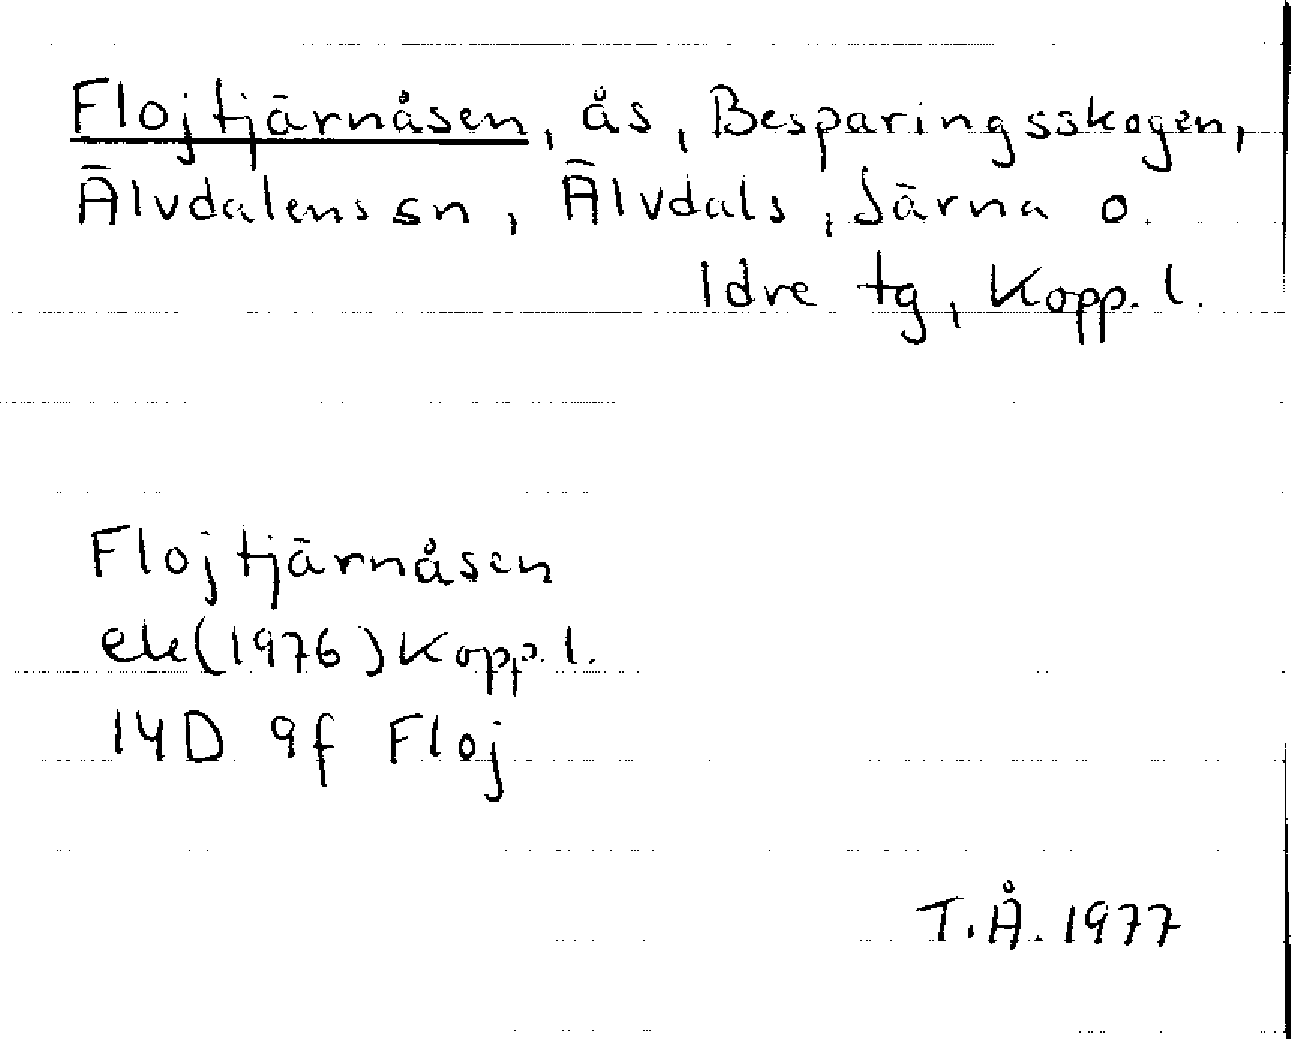 Flojtjärnåsen, ås, Besparingsskogen,
Älvdalens sn, Älvdals, Särna o.
Idre tg, Kopp. l.
Flojtjärnåsen
ek (1976) Kopp. l.
14D 9f Floj
T.Å. 1977